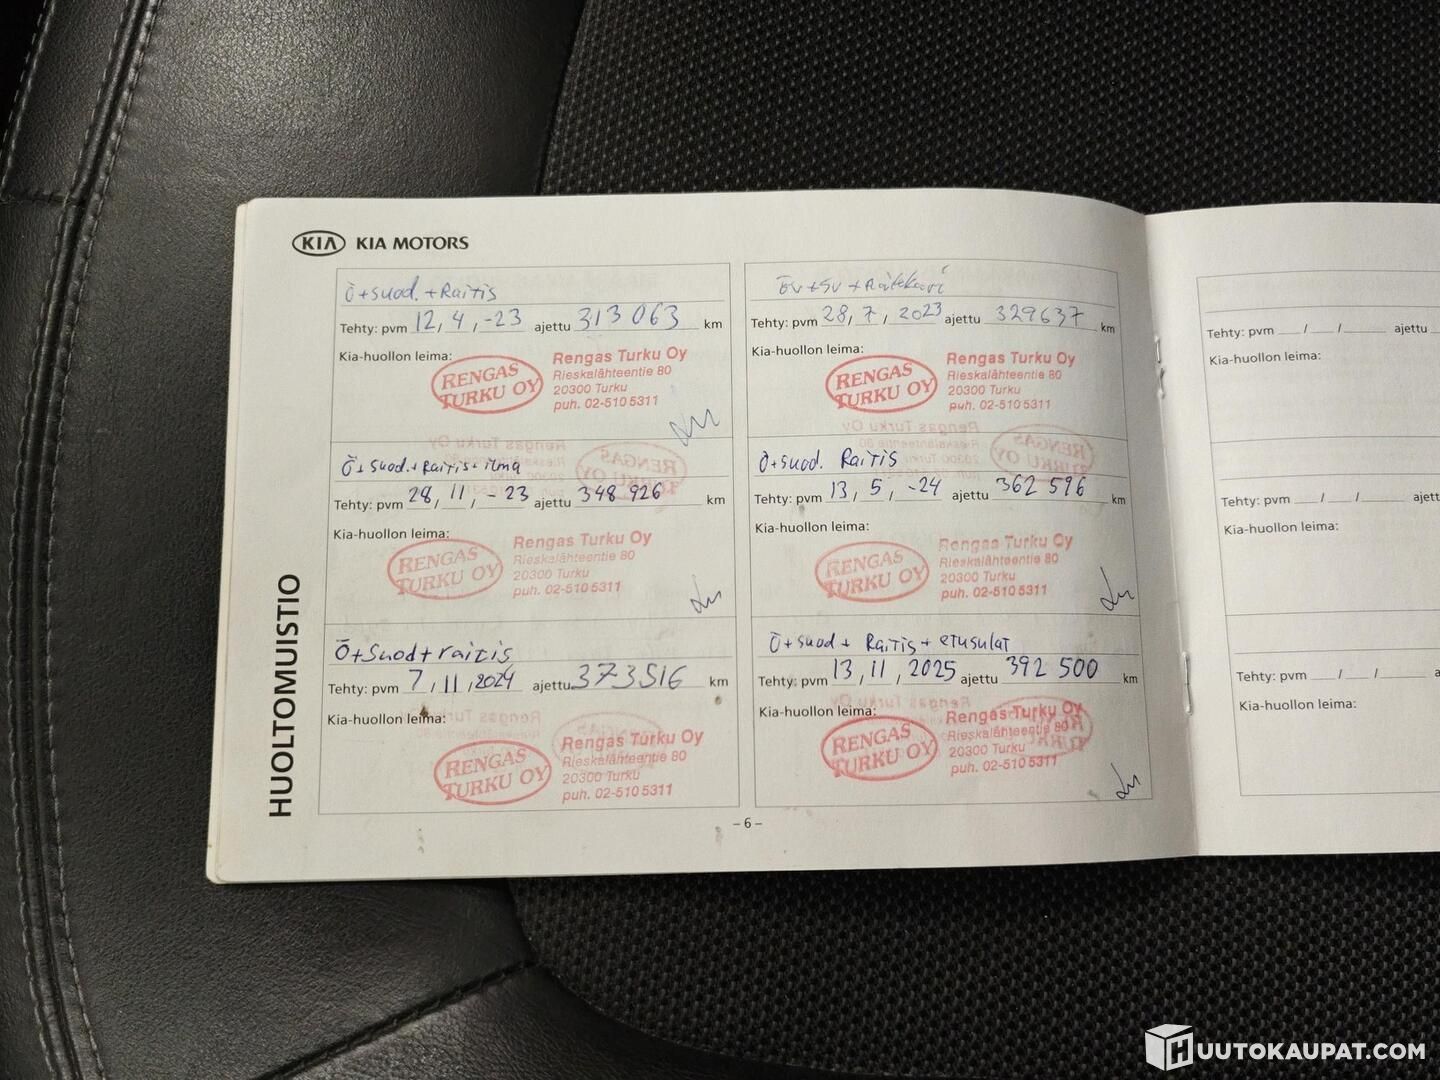 KIA KIA MOTORS
HUOLTOMUISTIO
Ö+suod.+Raitis
Tehty: pvm 12, 4, -23 ajettu 313 063 km
Kia-huollon leima:
RENGAS TURKU OY
Rengas Turku Oy
Rieskalähteentie 80
20300 Turku
puh. 02-510 5311
Tehty: pvm 28, 7, 2023 ajettu 329637 km
Kia-huollon leima:
RENGAS TURKU OY
Rengas Turku Oy
Rieskalähteentie 80
20300 Turku
puh. 02-510 5311
Ö+suod.+Raitis+ilma
Tehty: pvm 28, 11, -23 ajettu 348 926 km
Kia-huollon leima:
RENGAS TURKU OY
Rengas Turku Oy
Rieskalähteentie 80
20300 Turku
puh. 02-510 5311
Ö+suod. Raitis
Tehty: pvm 13, 5, -24 ajettu 362 596 km
Kia-huollon leima:
RENGAS TURKU OY
Rengas Turku Oy
Rieskalähteentie 80
20300 Turku
puh. 02-510 5311
Ö+suod+raitis
Tehty: pvm 7, 11, 2024 ajettu 373516 km
Kia-huollon leima:
RENGAS TURKU OY
Rengas Turku Oy
Rieskalähteentie 80
20300 Turku
puh. 02-510 5311
Ö+suod+ Raitis + etusulat
Tehty: pvm 13, 11, 2025 ajettu 392 500 km
Kia-huollon leima:
RENGAS TURKU OY
Rengas Turku Oy
Rieskalähteentie 80
20300 Turku
puh. 02-510 5311
– 6 –
Tehty: pvm / / ajettu
Kia-huollon leima:
Tehty: pvm / / ajett
Kia-huollon leima:
Tehty: pvm / / a
Kia-huollon leima:
HUUTOKAUPAT.COM